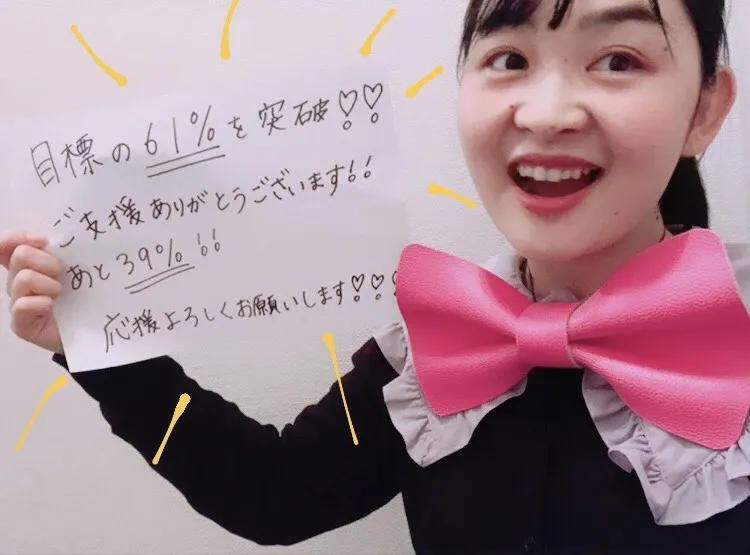 目標の61%を突破♡♡
ご支援ありがとうございます!!
あと39%!!
応援よろしくお願いします♡♡♡